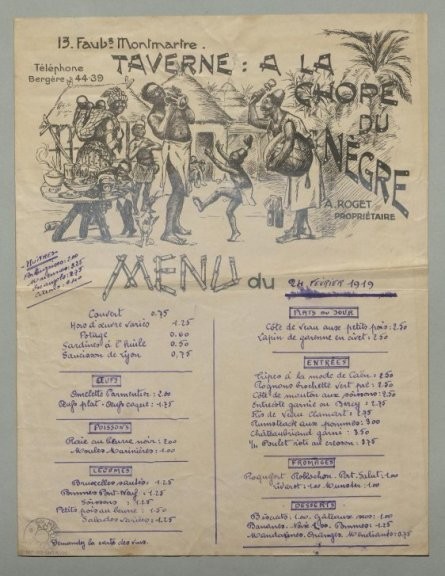 13. Faubg Montmartre.
Téléphone
Bergère : 44-39
TAVERNE : A LA
CHOPE
DU
NÈGRE
A. ROGET
PROPRIÉTAIRE
MENU du 24 FÉVRIER 1919
HUITRES
Couvert 0.75
Hors d'œuvre variés 1.25
Potage 0.60
Sardines à l'huile 0.50
Saucisson de Lyon 0,75
ŒUFS
Omelette Parmentier : 2.00
Œufs plat - Œufs coque : 1.75
POISSONS
Raie au beurre noir : 2.00
Moules Marinières : 1.00
LEGUMES
Bruxelles sautés : 1.25
Pommes Pont-Neuf : 1.25
Soissons : 1.25
Petits pois au beurre : 1.50
Salades variées : 1.25
Demandez la carte des vins.
PLATS du JOUR
Côte de veau aux petits pois : 2.50
Lapin de garenne en civet : 2.50
ENTRÉES
Tripes à la mode de Caen : 2.50
Rognons brochette vert pré : 2.50
Côte de mouton aux soissons : 2.50
Entrecôte garnie ou Bercy : 2.75
Ris de Veau Clamart : 2.95
Rumsteack aux pommes : 3.00
Châteaubriand garni : 3.50
Poulet roti au cresson : 3.75
FROMAGES
Roquefort Roblochon. Port-Salut : 1.00
Livarot : 1.00 Munster : 1.00
DESSERTS
Biscuits : 1.00 Gâteaux secs : 1.00
Bananes Noix 1.00 Pommes : 1.25
Mandarines, Oranges, Mendiants : 0.75